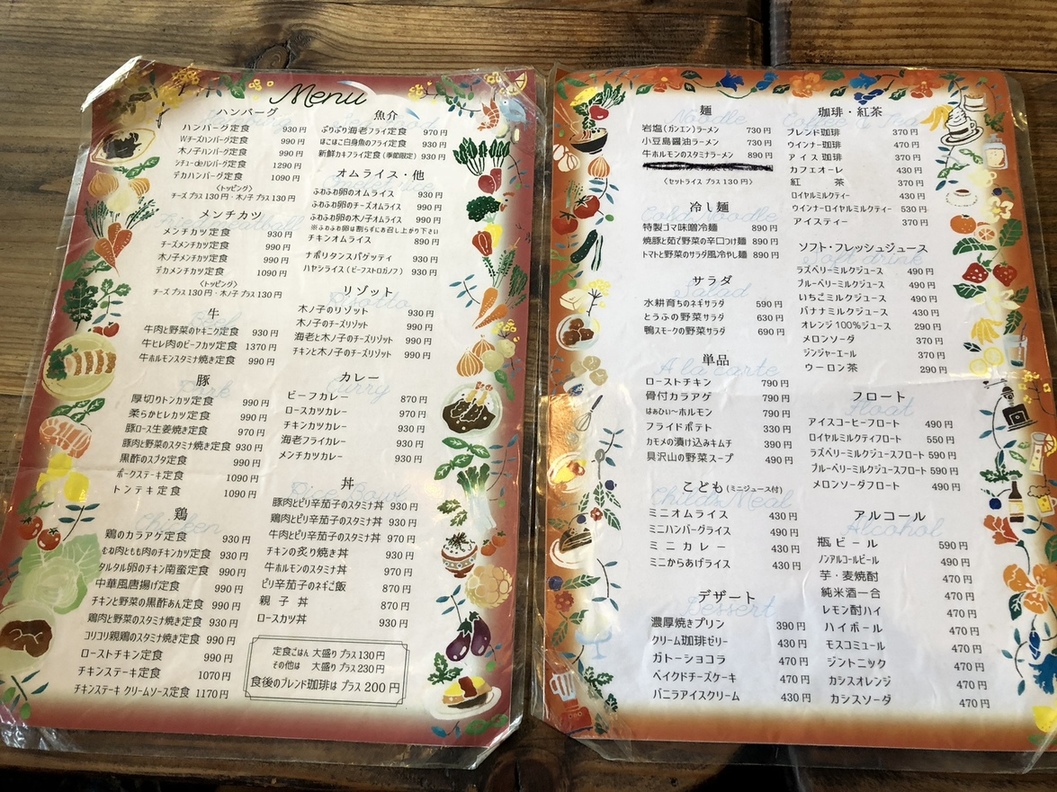 Menu
ハンバーグ
ハンバーグ定食 930円
Wチーズハンバーグ定食 990円
木ノ子ハンバーグ定食 990円
シチューdeハンバーグ定食 1290円
デカハンバーグ定食 1290円
〈トッピング〉
チーズ プラス 130円・木ノ子 プラス 130円
メンチカツ
メンチカツ定食 930円
チーズメンチカツ定食 990円
木ノ子メンチカツ定食 990円
デカメンチカツ定食 1090円
〈トッピング〉
チーズ プラス 130円・木ノ子 プラス 130円
牛
牛肉と野菜のヤキニク定食 930円
牛ヒレ肉のビーフカツ定食 1370円
牛ホルモンスタミナ焼き定食 990円
豚
Pork
厚切りトンカツ定食 990円
柔らかヒレカツ定食 990円
豚ロース生姜焼き定食 970円
豚肉と野菜のスタミナ焼き定食 930円
黒酢のスブタ定食 990円
ポークステーキ定食 1090円
トンテキ定食 1090円
鶏
Chicken
鶏のカラアゲ定食 930円
むね肉ともも肉のチキンカツ定食 930円
タルタル卵のチキン南蛮定食 990円
中華風唐揚げ定食 990円
チキンと野菜の黒酢あん定食 990円
鶏肉と野菜のスタミナ焼き定食 930円
コリコリ親鶏のスタミナ焼き定食 990円
ローストチキン定食 990円
チキンステーキ定食 1070円
チキンステーキ クリームソース定食 1170円
魚介
ぷりぷり海老フライ定食 970円
ほこほこ白身魚のフライ定食 930円
新鮮カキフライ定食(季節限定) 930円
オムライス・他
ふわふわ卵のオムライス 930円
ふわふわ卵のチーズオムライス 990円
ふわふわ卵の木ノ子オムライス 990円
※ふわふわ卵は割らずにお召し上がり下さい
チキンオムライス 890円
ナポリタンスパゲッティ 930円
ハヤシライス(ビーフストロガノフ) 930円
リゾット
Risotto
木ノ子のリゾット 930円
木ノ子のチーズリゾット 990円
海老と木ノ子のチーズリゾット 990円
チキンと木ノ子のチーズリゾット 990円
カレー
Curry
ビーフカレー 870円
ロースカツカレー 930円
チキンカツカレー 930円
海老フライカレー 930円
メンチカツカレー 930円
丼
Rice Bowl
豚肉とピリ辛茄子のスタミナ丼 930円
鶏肉とピリ辛茄子のスタミナ丼 930円
牛肉とピリ辛茄子のスタミナ丼 970円
チキンの炙り焼き丼 930円
牛ホルモンのスタミナ丼 970円
ピリ辛茄子のネギご飯 870円
親子丼 870円
ロースカツ丼 930円
定食ごはん 大盛り プラス 130円
その他は 大盛り プラス 230円
食後のブレンド珈琲は プラス 200円
麺
Noodle
岩塩(ガンエン)ラーメン 730円
小豆島醤油ラーメン 730円
牛ホルモンのスタミナラーメン 890円
〈セットライス プラス 130円〉
冷し麺
Cold Noodle
特製ゴマ味噌冷麺 890円
焼豚と茹で野菜の辛口つけ麺 890円
トマトと野菜のサラダ風冷やし麺 890円
サラダ
Salad
水耕育ちのネギサラダ 590円
とうふの野菜サラダ 630円
鴨スモークの野菜サラダ 690円
単品
A la carte
ローストチキン 790円
骨付カラアゲ 790円
はぁひぃ〜ホルモン 790円
フライドポテト 330円
カモメの漬け込みキムチ 390円
具沢山の野菜スープ 490円
こども(ミニジュース付)
Child's Meal
ミニオムライス 430円
ミニハンバーグライス 430円
ミニカレー 430円
ミニからあげライス 430円
デザート
Dessert
濃厚焼きプリン 390円
クリーム珈琲ゼリー 430円
ガトーショコラ 470円
ベイクドチーズケーキ 470円
バニラアイスクリーム 430円
珈琲・紅茶
ブレンド珈琲 370円
ウインナー珈琲 470円
アイス珈琲 370円
カフェオーレ 430円
紅茶 370円
ロイヤルミルクティー 430円
ウインナーロイヤルミルクティー 530円
アイスティー 370円
ソフト・フレッシュジュース
Soft drink
ラズベリーミルクジュース 490円
ブルーベリーミルクジュース 490円
いちごミルクジュース 490円
バナナミルクジュース 430円
オレンジ100%ジュース 290円
メロンソーダ 370円
ジンジャーエール 370円
ウーロン茶 290円
フロート
Float
アイスコーヒーフロート 490円
ロイヤルミルクティフロート 550円
ラズベリーミルクジュースフロート 590円
ブルーベリーミルクジュースフロート 590円
メロンソーダフロート 490円
アルコール
Alcohol
瓶ビール 590円
ノンアルコールビール 490円
芋・麦焼酎 470円
純米酒一合 470円
レモン酎ハイ 470円
ハイボール 470円
モスコミュール 470円
ジントニック 470円
カシスオレンジ 470円
カシスソーダ 470円